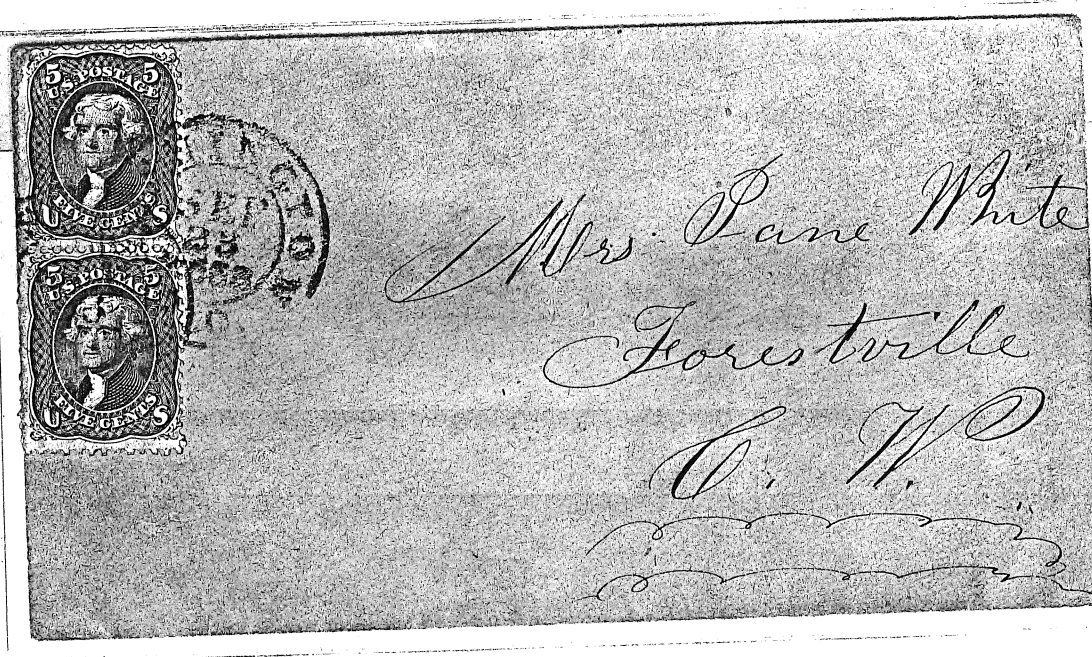 5 5
U.S. POSTAGE
FIVE CENTS
U S
5 5
U.S. POSTAGE
FIVE CENTS
U S
SEP
Mrs. Jane White
Forestville
C. W.